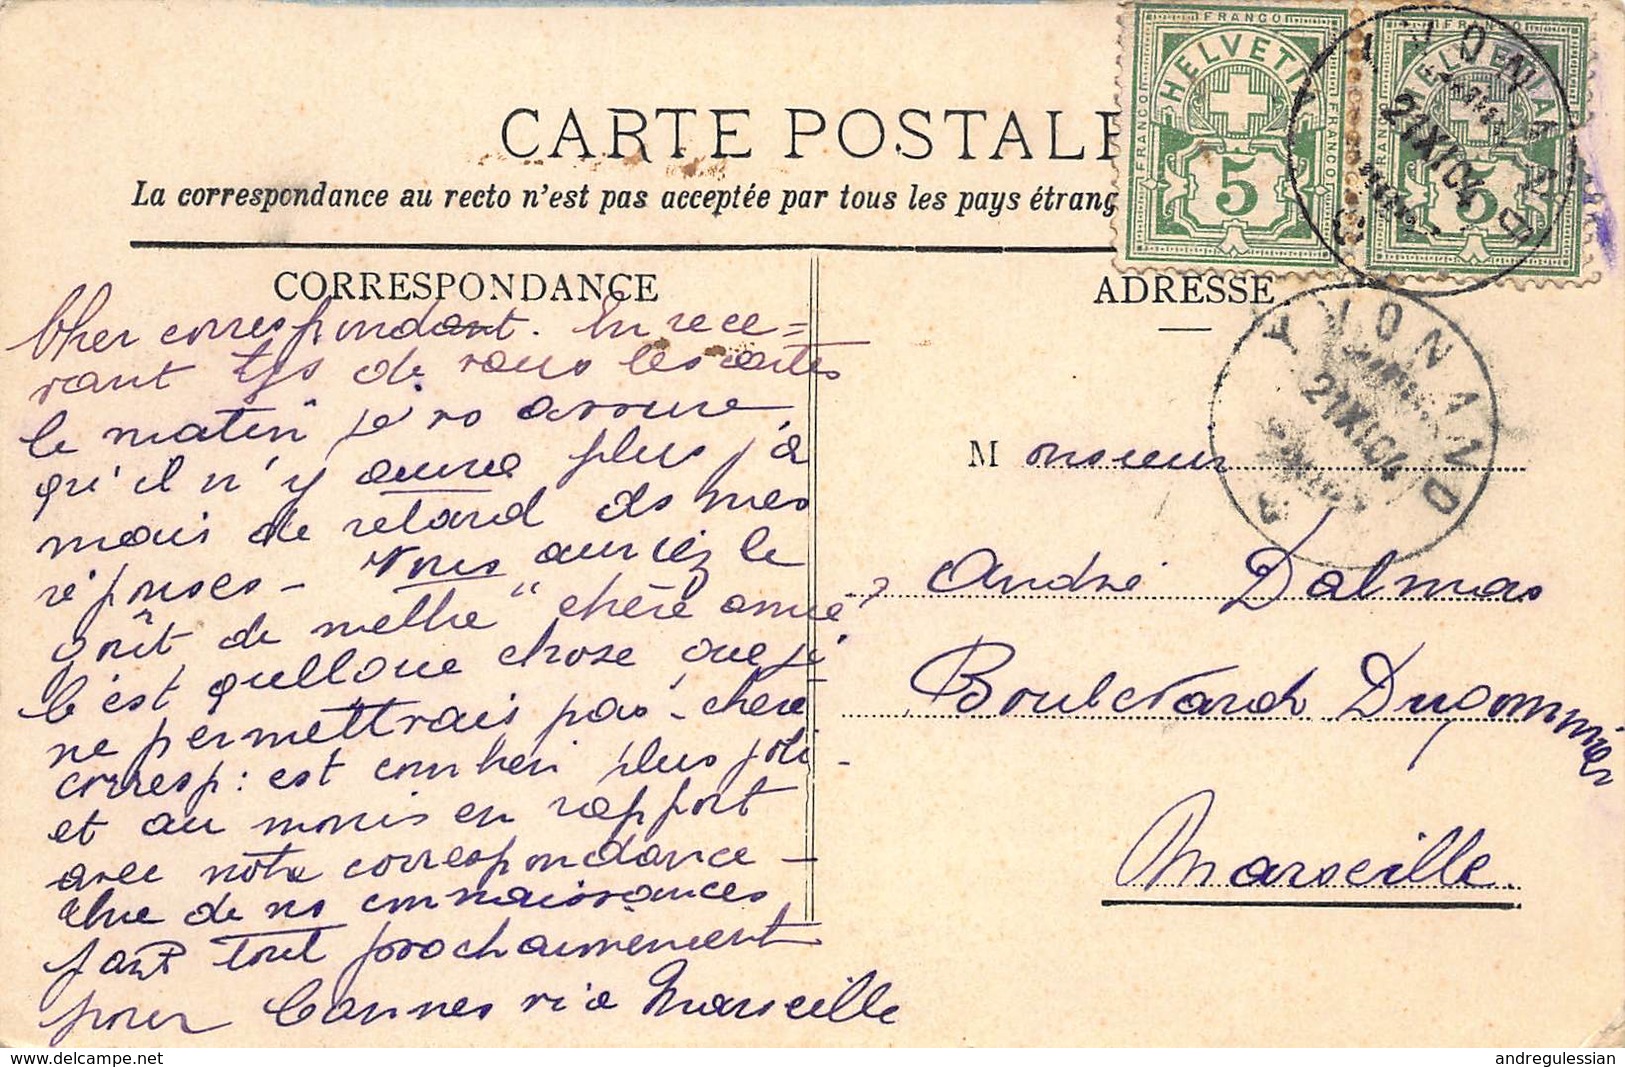 CARTE POSTALE
La correspondance au recto n'est pas acceptée par tous les pays étrang
FRANCO
HELVETIA
FRANCO
FRANCO
5
FRANCO
HELVETIA
FRANCO
5
YVONAND
21 XI 04
CORRESPONDANCE
ADRESSE
YVONAND
21 XI 04
Cher correspondant. En rece=
vant tjs de vous les cartes
le matin je vs assure
qu'il n'y aura plus ja
mais de retard ds mes
réponses - Vous auriez le
goût de mettre "chère amie"
C'est quelque chose que je
ne permettrais pas - chère
corresp: est combien plus joli -
et au moins en rapport
avec notre correspondance -
Une de ns connaissances
part tout prochainement
pour Cannes via Marseille
Monsieur
André Dalmas
Boulevard Dugommier
Marseille.
delcampe.net
andregulessian